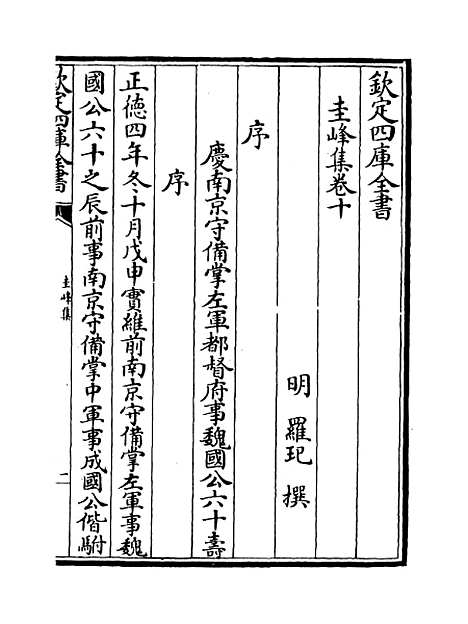 欽定四庫全書
圭峰集卷十
明 羅玘 撰
序
慶南京守備掌左軍都督府事魏國公六十壽
序
正德四年冬十月戊申實維前南京守備掌左軍事魏
國公六十之辰前事南京守備掌中軍事成國公偕駙
欽定四庫全書
圭峰集
二